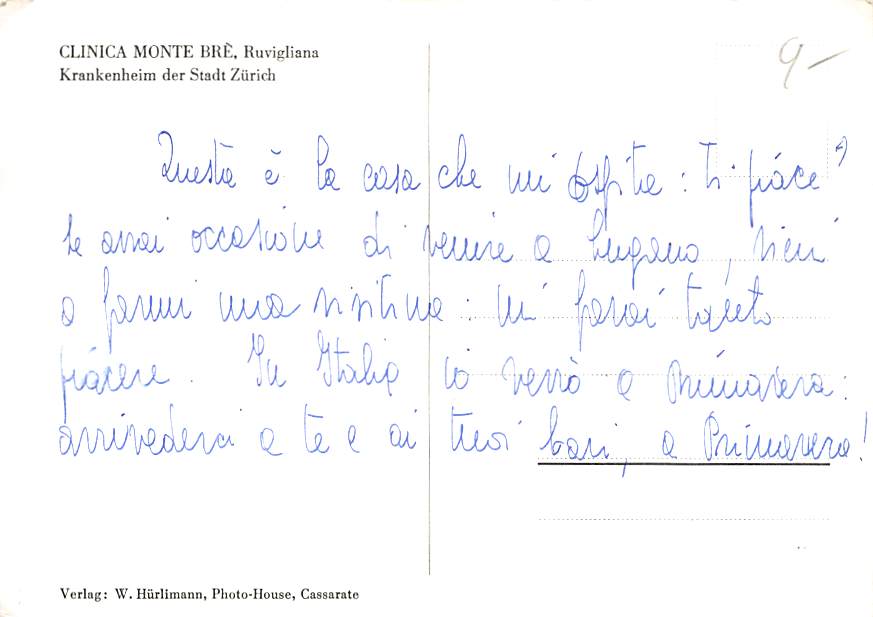 CLINICA MONTE BRÈ, Ruvigliana
Krankenheim der Stadt Zürich
9.–
Questa è la casa che mi ospita: ti piace?
se avrai occasione di venire a Lugano, vieni
a farmi una visitina: mi farai tanto
piacere. In Italia io verrò a Primavera:
arrivederci a te e ai tuoi cari, a Primavera!
Verlag: W. Hürlimann, Photo-House, Cassarate